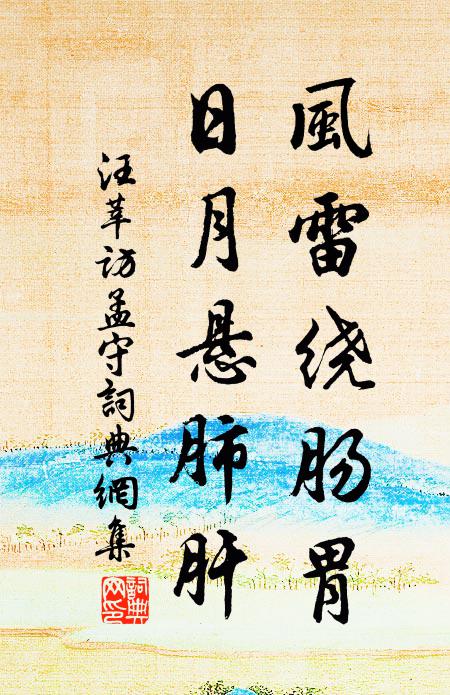 風雷绕肠胃
日月悬肺肝
汪莘访孟守詞典網集
詞典网印